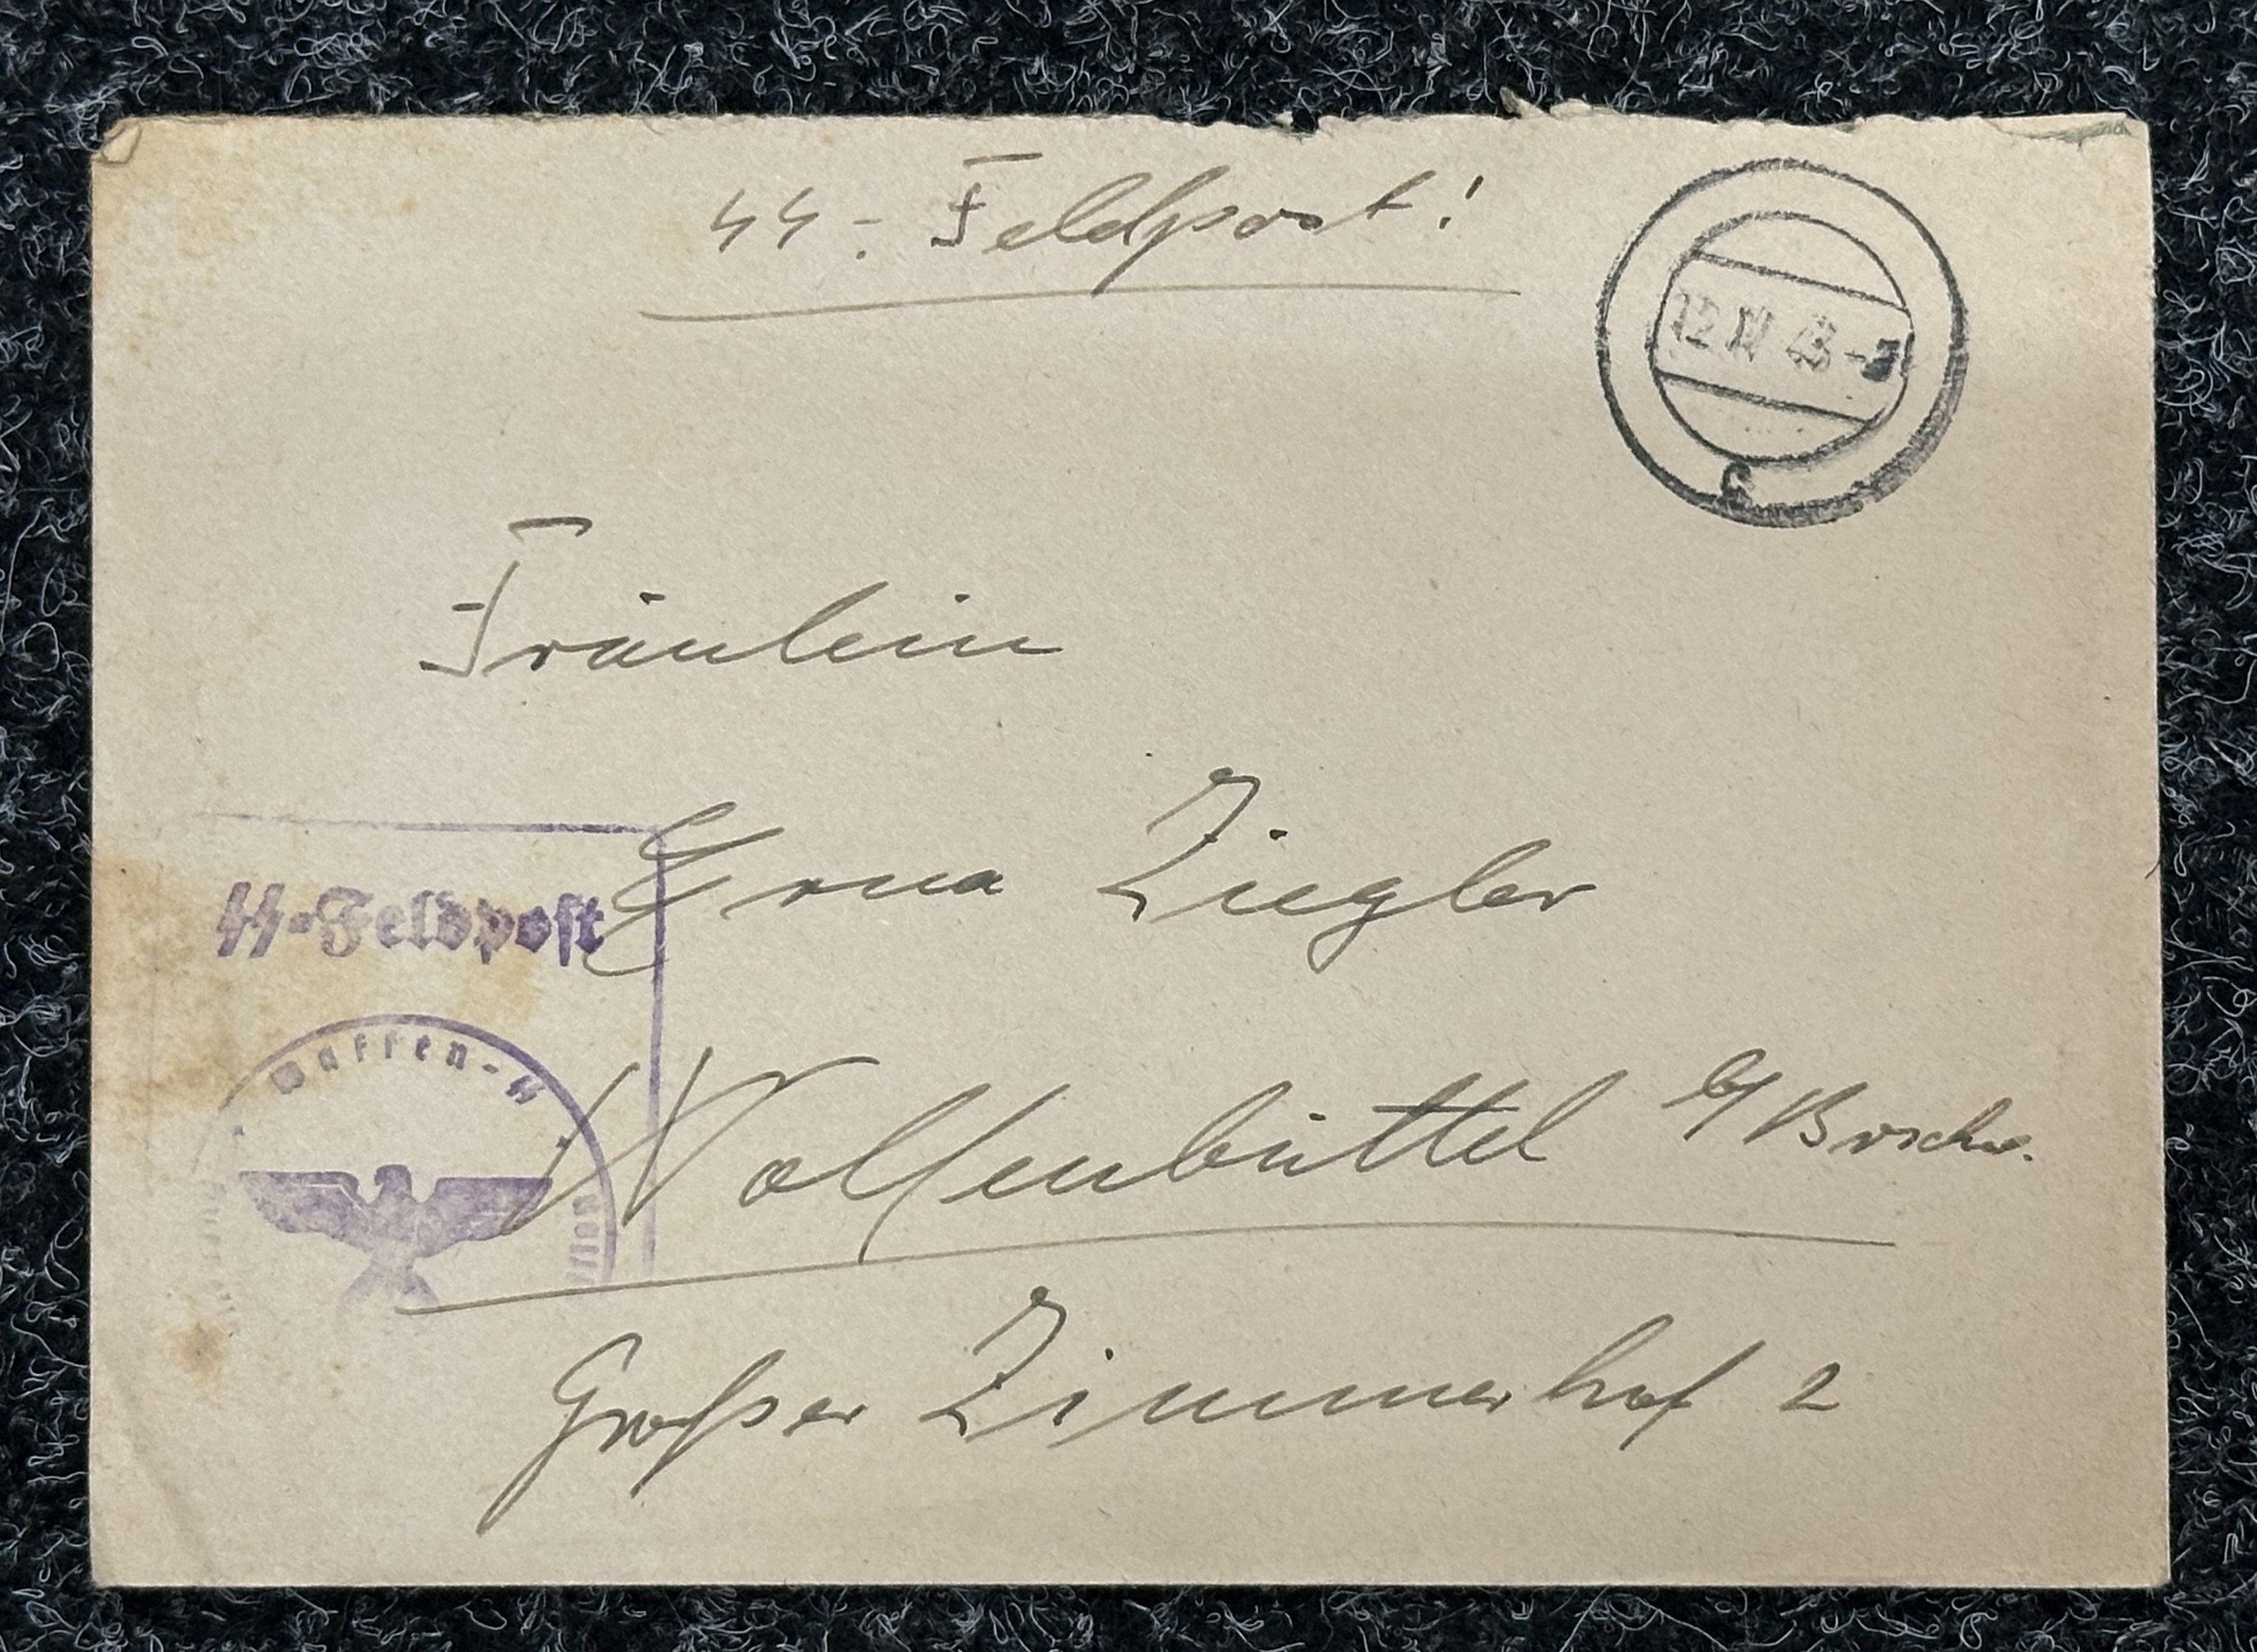 SS-Feldpost!
12 43-
c
Fräulein
Erna Ziegler
SS-Feldpost
Waffen-SS
Wolfenbüttel b/Brschw.
Großer Zimmerhof 2